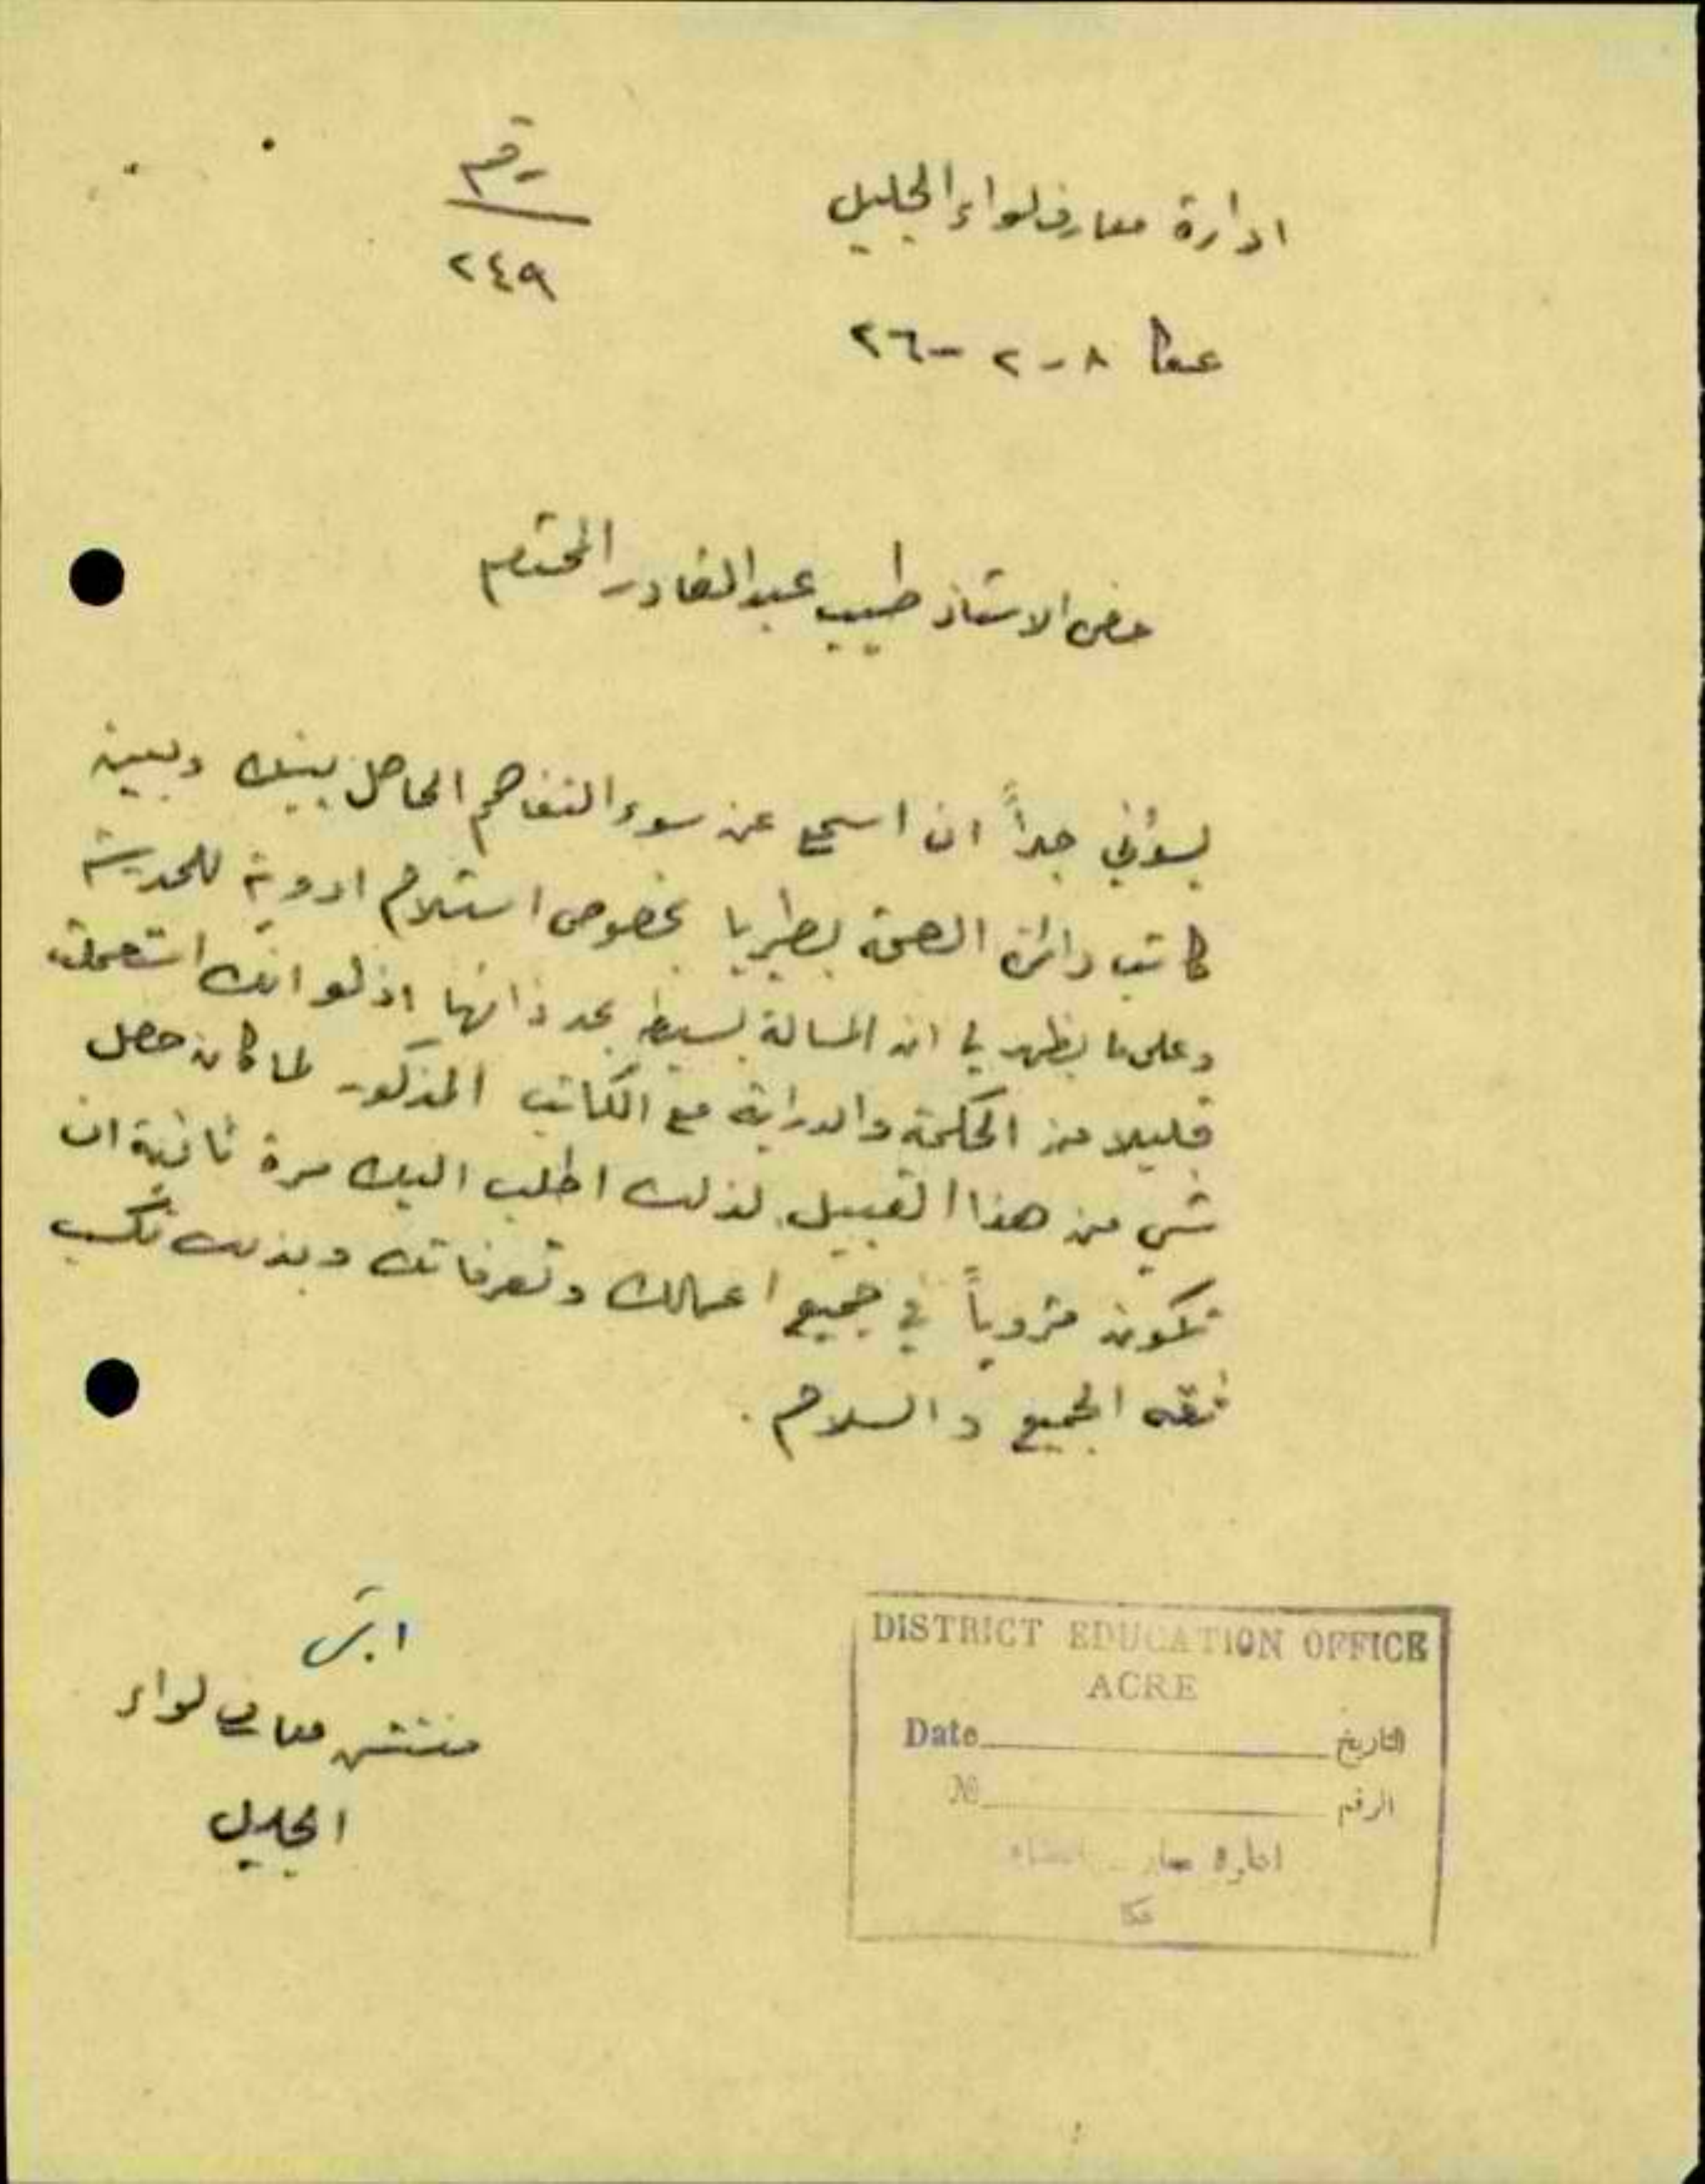 رقم
٢٤٩
ادارة معارف لواء الجليل
عكا ٨-٢-٢٦
حضرة الاستاذ طبيب عبد القادر المحترم
يسؤني جداً ان اسمع عن سوء التفاهم الحاصل بينك وبين
كاتب دائرة الصحة بطبريا بخصوص استلام ادوية للمدرسة
وعلى ما يظهر لي ان المسالة بسيطة بحد ذاتها اذ لو انك استعملت
قليلا من الحكمة والدراية مع الكاتب المذكور لما كان حصل
شي من هذا القبيل. لذلك اطلب اليك مرة ثانية ان
تكون متروياً في جميع اعمالك وتصرفاتك وبذلك تكسب
ثقة الجميع والسلام.
مفتش معارف لواء
الجليل
DISTRICT EDUCATION OFFICE
ACRE
Date التاريخ
No الرقم
ادارة معارف
عكا